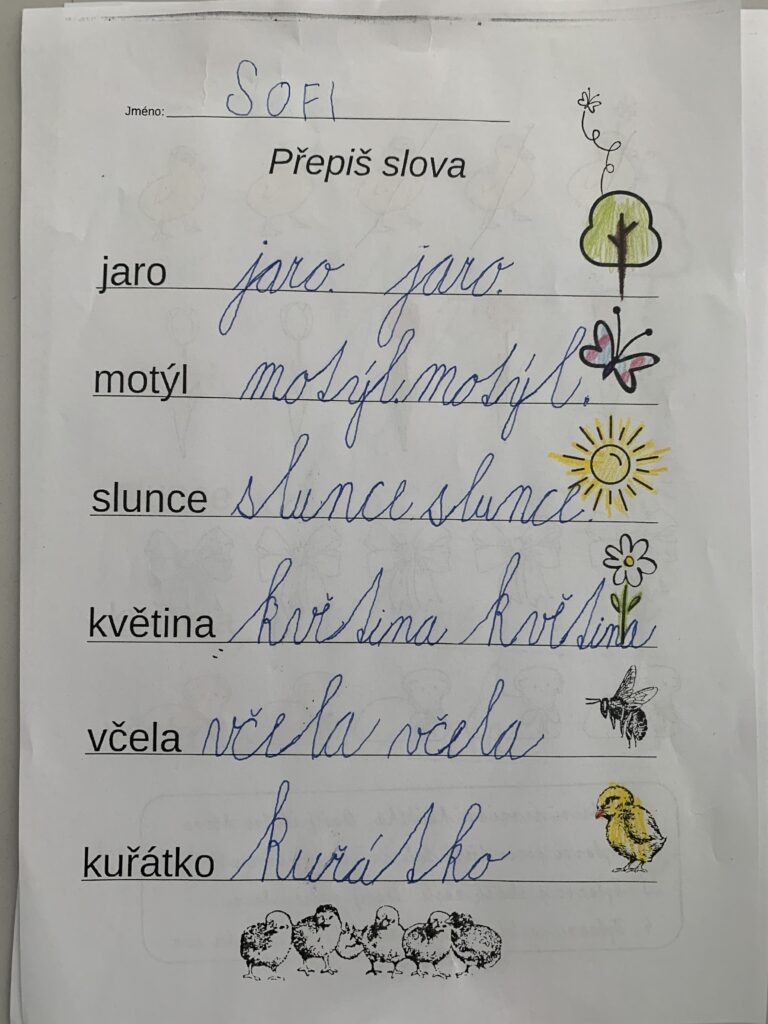 Jméno: SOFI
Přepiš slova
jaro jaro. jaro.
motýl motýl. motýl.
slunce slunce. slunce.
květina květina květina
včela včela včela
kuřátko kuřátko